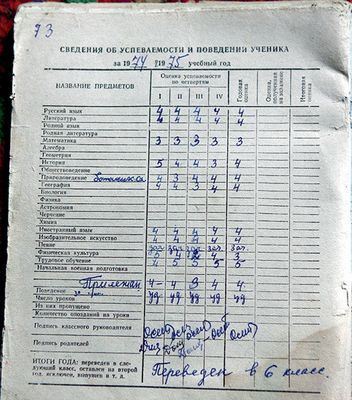 73
СВЕДЕНИЯ ОБ УСПЕВАЕМОСТИ И ПОВЕДЕНИИ УЧЕНИКА
за 1974 – 1975 учебный год
НАЗВАНИЕ ПРЕДМЕТОВ Оценка успеваемости по четвертям I II III IV Годовая оценка Оценка, полученная на экзамене Итоговая оценка
Русский язык 4 4 4 4 4
Литература 4 4 4 4 4
Родной язык
Родная литература
Математика 3 3 3 3 3
Алгебра
Геометрия
История 5 4 4 3 4
Обществоведение
Природоведение Ботаника 4 3 4 4 4
География 4 4 3 4 4
Биология
Физика
Астрономия
Черчение
Химия
Иностранный язык 4 4 4 4 4
Изобразительное искусство 4 4 4 4 4
Пение зач. зач. зач. зач. зач.
Физическая культура 5 4 2 4 3
Трудовое обучение 4 5 5 5 5
Начальная военная подготовка
Прилежан 4- 4 3 4 4
Поведение уд уд уд уд уд
Число уроков
Из них пропущено
Количество опозданий на уроки
Подпись классного руководителя
Подпись родителей
ИТОГИ ГОДА: переведен в следующий класс, оставлен на второй год, исключен, выпущен и т. д.
Переведен в 6 класс.